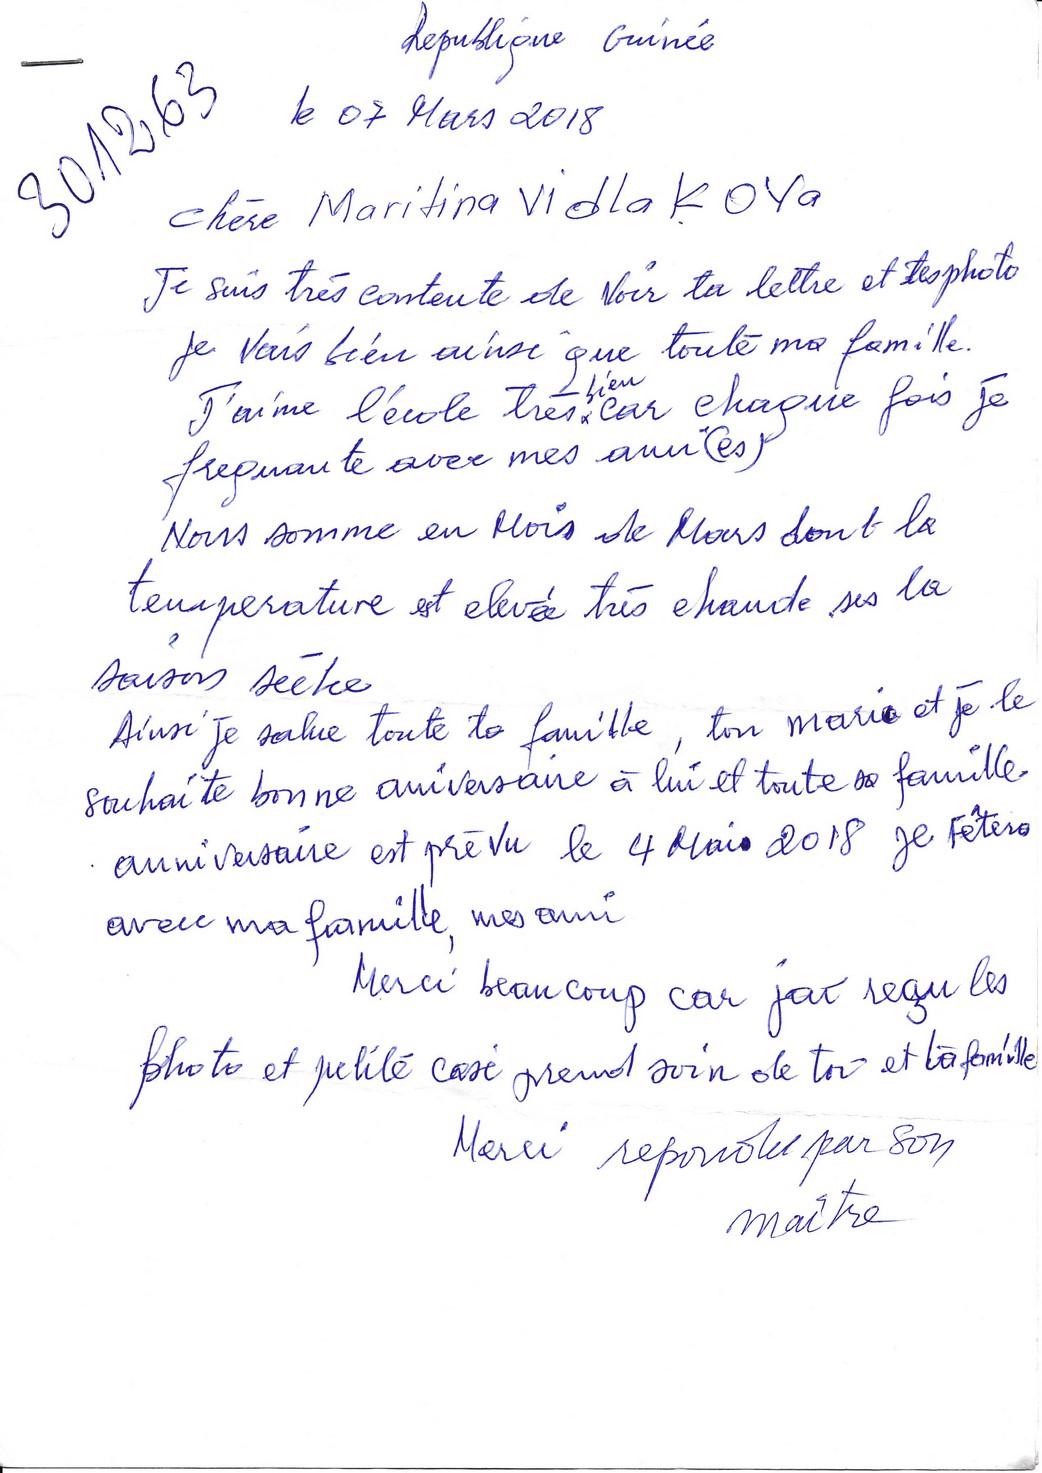 Republique Guinée
301263
le 07 Mars 2018
chère Maritina Vidlakova
Je suis très contente de voir ta lettre et tesphoto
je vais bien ainsi que toute ma famille.
J'aime l'école très bien car chaque fois je
frequante avec mes ami(es)
Nous somme en Mois de Mars dont la
temperature est elevée très chaude ses la
saison sèche
Ainsi je salue toute ta famille, ton mari et je le
souhaite bonne aniversaire à lui et toute sa famille.
anniversaire est prévu le 4 Mai 2018 je fêtera
avec ma famille, mes ami
Merci beaucoup car j'ai reçu les
photo et petite case prend soin de toi et ta famille
Merci repondu par son
maître